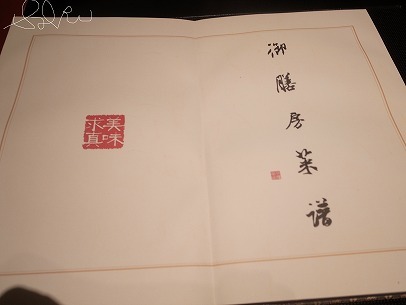 御膳房菜谱
美味
求真